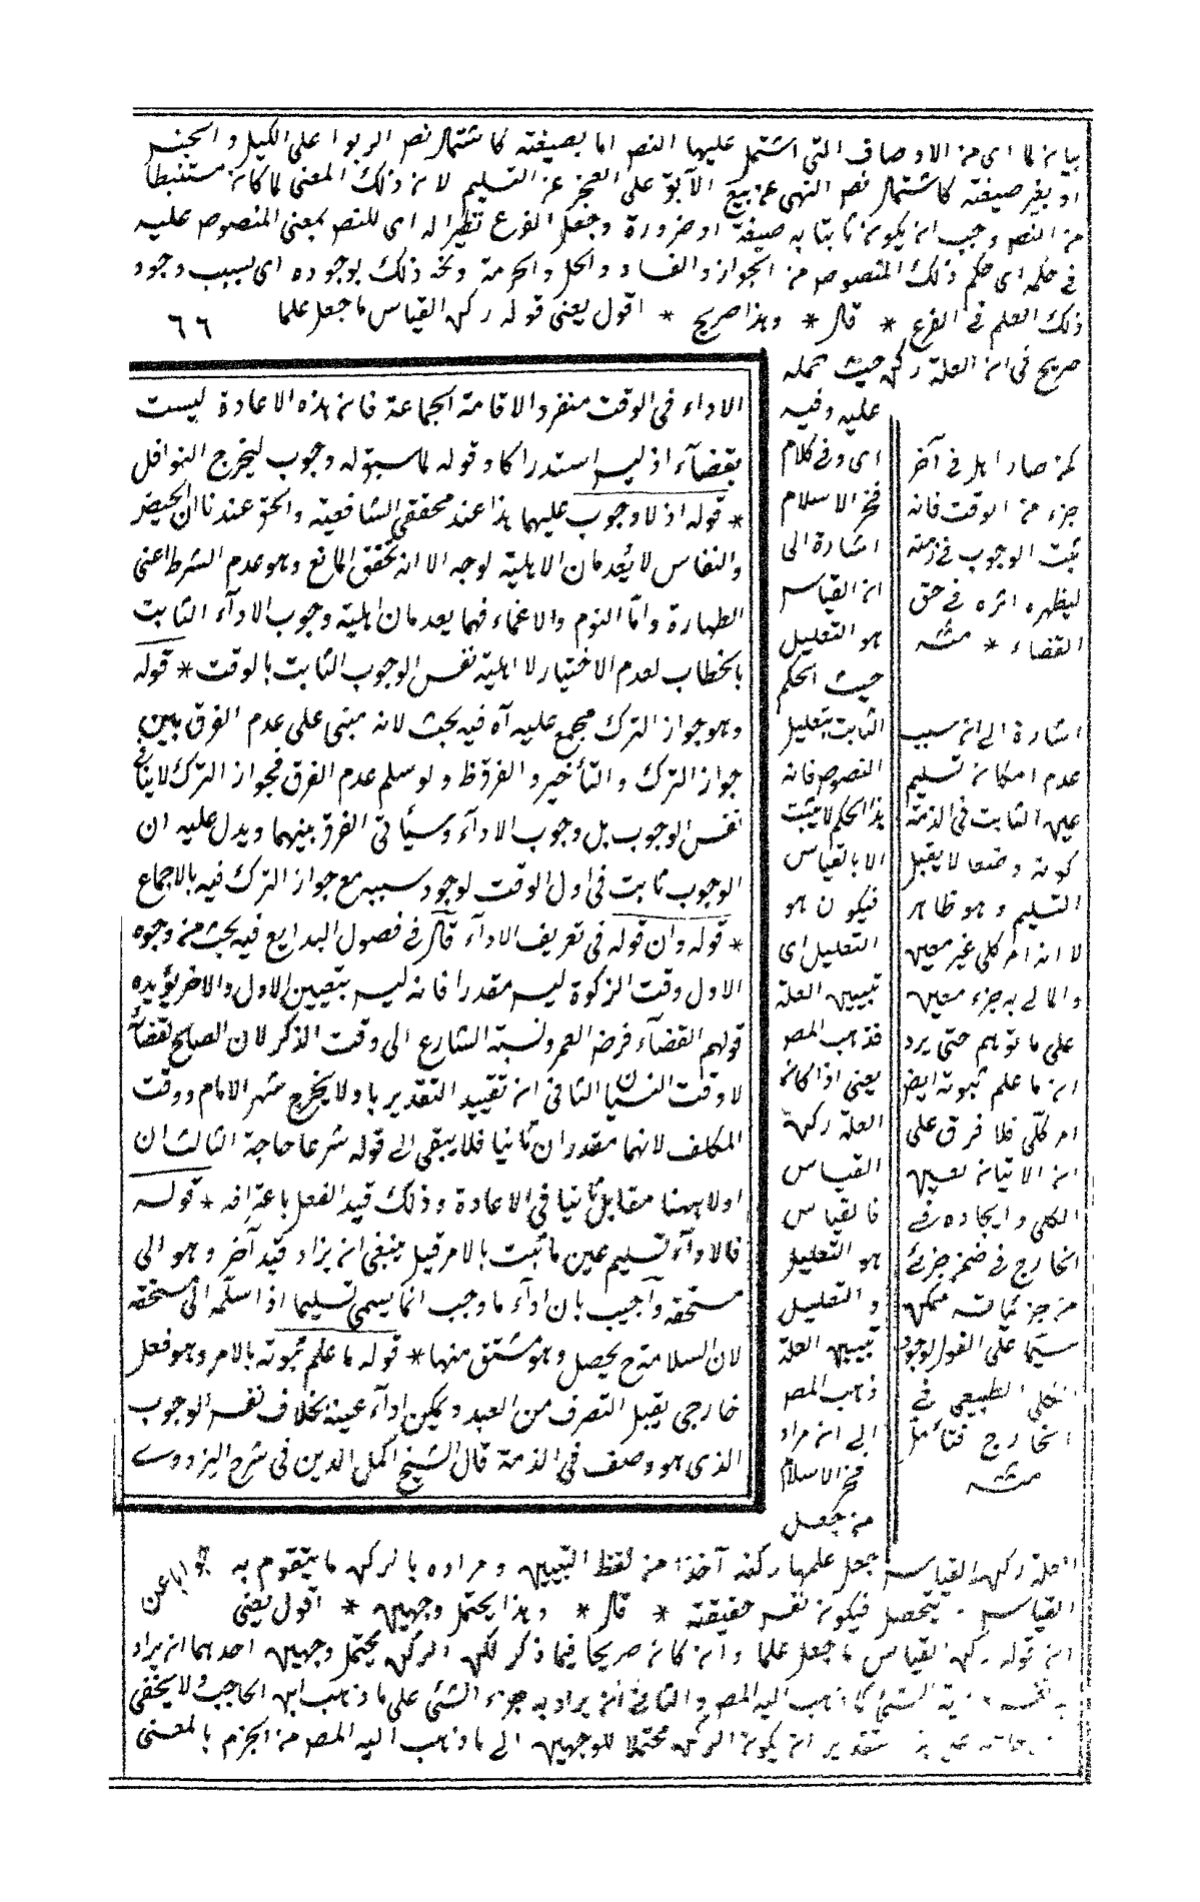 بيان لما اى من الاوصاف التى اشتمل عليها النص اما بصيغته كاشتمال نص الربوا على الكيل والجنس
او بغير صيغته كاشتمال نص النهى عن بيع الآبق على العجز عن التسليم لان ذلك المعنى لما كان مستنبطا
من النص وجب ان يكون ثابتا به صيغة او ضرورة وجعل الفرع نظيرا له اى للنص بمعنى المنصوص عليه
فى حكمه اى حكم ذلك المنصوص من الجواز والفساد والحل والحرمة ونحو ذلك بوجوده اى بسبب وجود
ذلك العلم فى الفرع * قال * وهذا صريح * اقول يعنى قوله ركن القياس ما جعل علما
٦٦
صريح فى ان العلة ركن حيث حمله
عليه وفيه
اى وفى كلام
فخر الاسلام
اشارة الى
ان القياس
هو التعليل
حيث الحكم
الثابت بتعليل
النصوص فانه
هذا الحكم لا يثبت
الا بالقياس
فيكون هو
التعليل اى
تبيين العلة
فذهب المص
يعنى اذا كان
العلة ركن
القياس
فالقياس
هو التعليل
والتعليل
تبيين العلة
ذهب المص
الى ان مراد
فخر الاسلام
من جعل
العلة ركن القياس جعل علمها ركنه آخذا من لفظ التبيين ومراده بالركن ما يتقوم به
القياس ويتحصل فيكون نفس حقيقته * قال * وهذا يحتمل وجهين * اقول يعنى
جوابا عن
ان قوله ركن القياس ما جعل علما وان كان صريحا فيما ذكر لكن الركن يحتمل وجهين احدهما ان يراد
به نفس الشئ كما ذهب اليه المص والثانى ان يراد به جزء الشئ على ما ذهب ابن الحاجب ولا يخفى
تقدير ان يكون الركن محتملا للوجهين الى ما ذهب اليه المص من الجزم بالمعنى
الاداء فى الوقت منفردا لاقامة الجماعة فان هذه الاعادة ليست
بقضآء اذ ليس استدراكا وقوله لما سبق له وجوب ليخرج النوافل
* قوله اذ لا وجوب عليهما هذا عند محققى الشافعية والحق عندنا ان الحيض
والنفاس لا يعدمان الاهلية لوجه الا انه تحقق المانع وهو عدم الشرط اعنى
الطهارة واما النوم والاغماء فهما يعدمان اهلية وجوب الادآء الثابت
بالخطاب لعدم الاختيار لا اهلية نفس الوجوب الثابت بالوقت * قوله
وهو جواز الترك مجمع عليه اه فيه بحث لانه مبنى على عدم الفرق بين
جواز الترك والتأخير والفرق ظ ولو سلم عدم الفرق فجواز الترك لا ينافى
نفس الوجوب بل وجوب الادآء وسيأتى الفرق بينهما ويدل عليه ان
الوجوب ثابت فى اول الوقت لوجود سببه مع جواز الترك فيه بالاجماع
* قوله وان قوله فى تعريف الادآء قال فى فصول البدايع فيه بحث من وجوه
الاول وقت الزكوة ليس مقدرا فانه ليس بتعيين الاول والاخر يؤيده
قولهم القضآء فرض العمر ونسبة الشارع الى وقت الذكر لان الصالح لقضآء
لا وقت النسيان الثانى ان تقييد التقدير باولا يخرج شهر الامام ووقت
المكلف لانهما مقدران ثانيا فلا يبقى الى قوله شرعا حاجة الثالث ان
اولا ههنا مقابل ثانيا فى الاعادة وذلك قيد الفعل باعترافه * قوله
فالادآء تسليم عين ما ثبت بالامر قيل ينبغى ان يزاد قيد آخر وهو الى
مستحقه وآجيب بان ادآء ما وجب انما يسمى تسليما اذا سلمه الى مستحقه
لان السلامة ح يحصل وهو مشتق منها * قوله ما علم ثبوته بالامر وهو فعل
خارجى يقبل التصرف من العبد ويمكن ادآء عينه بخلاف نفس الوجوب
الذى هو وصف فى الذمة قال الشيخ اكمل الدين فى شرح البزدوى
كمن صار اهلا فى آخر
جزء من الوقت فانه
ثبت الوجوب فى ذمته
ليظهر اثره فى حق
القضاء * منه
اشارة الى ان سبب
عدم امكان تسليم
عين الثابت فى الذمة
كونه وصفا لا يقبل
التسليم وهو ظاهر
لا انه امر كلى غير معين
والمالى به جزء معين
على ما توهم حتى يرد
ان ما علم ثبوته ايض
امر كلى فلا فرق على
ان الاتيان بعين
الكلى وايجاده فى
الخارج فى ضمن جزئى
من جزئياته ممكن
سيما على القول بوجود
الكلى الطبيعى فى
الخارج فتأمل
منه